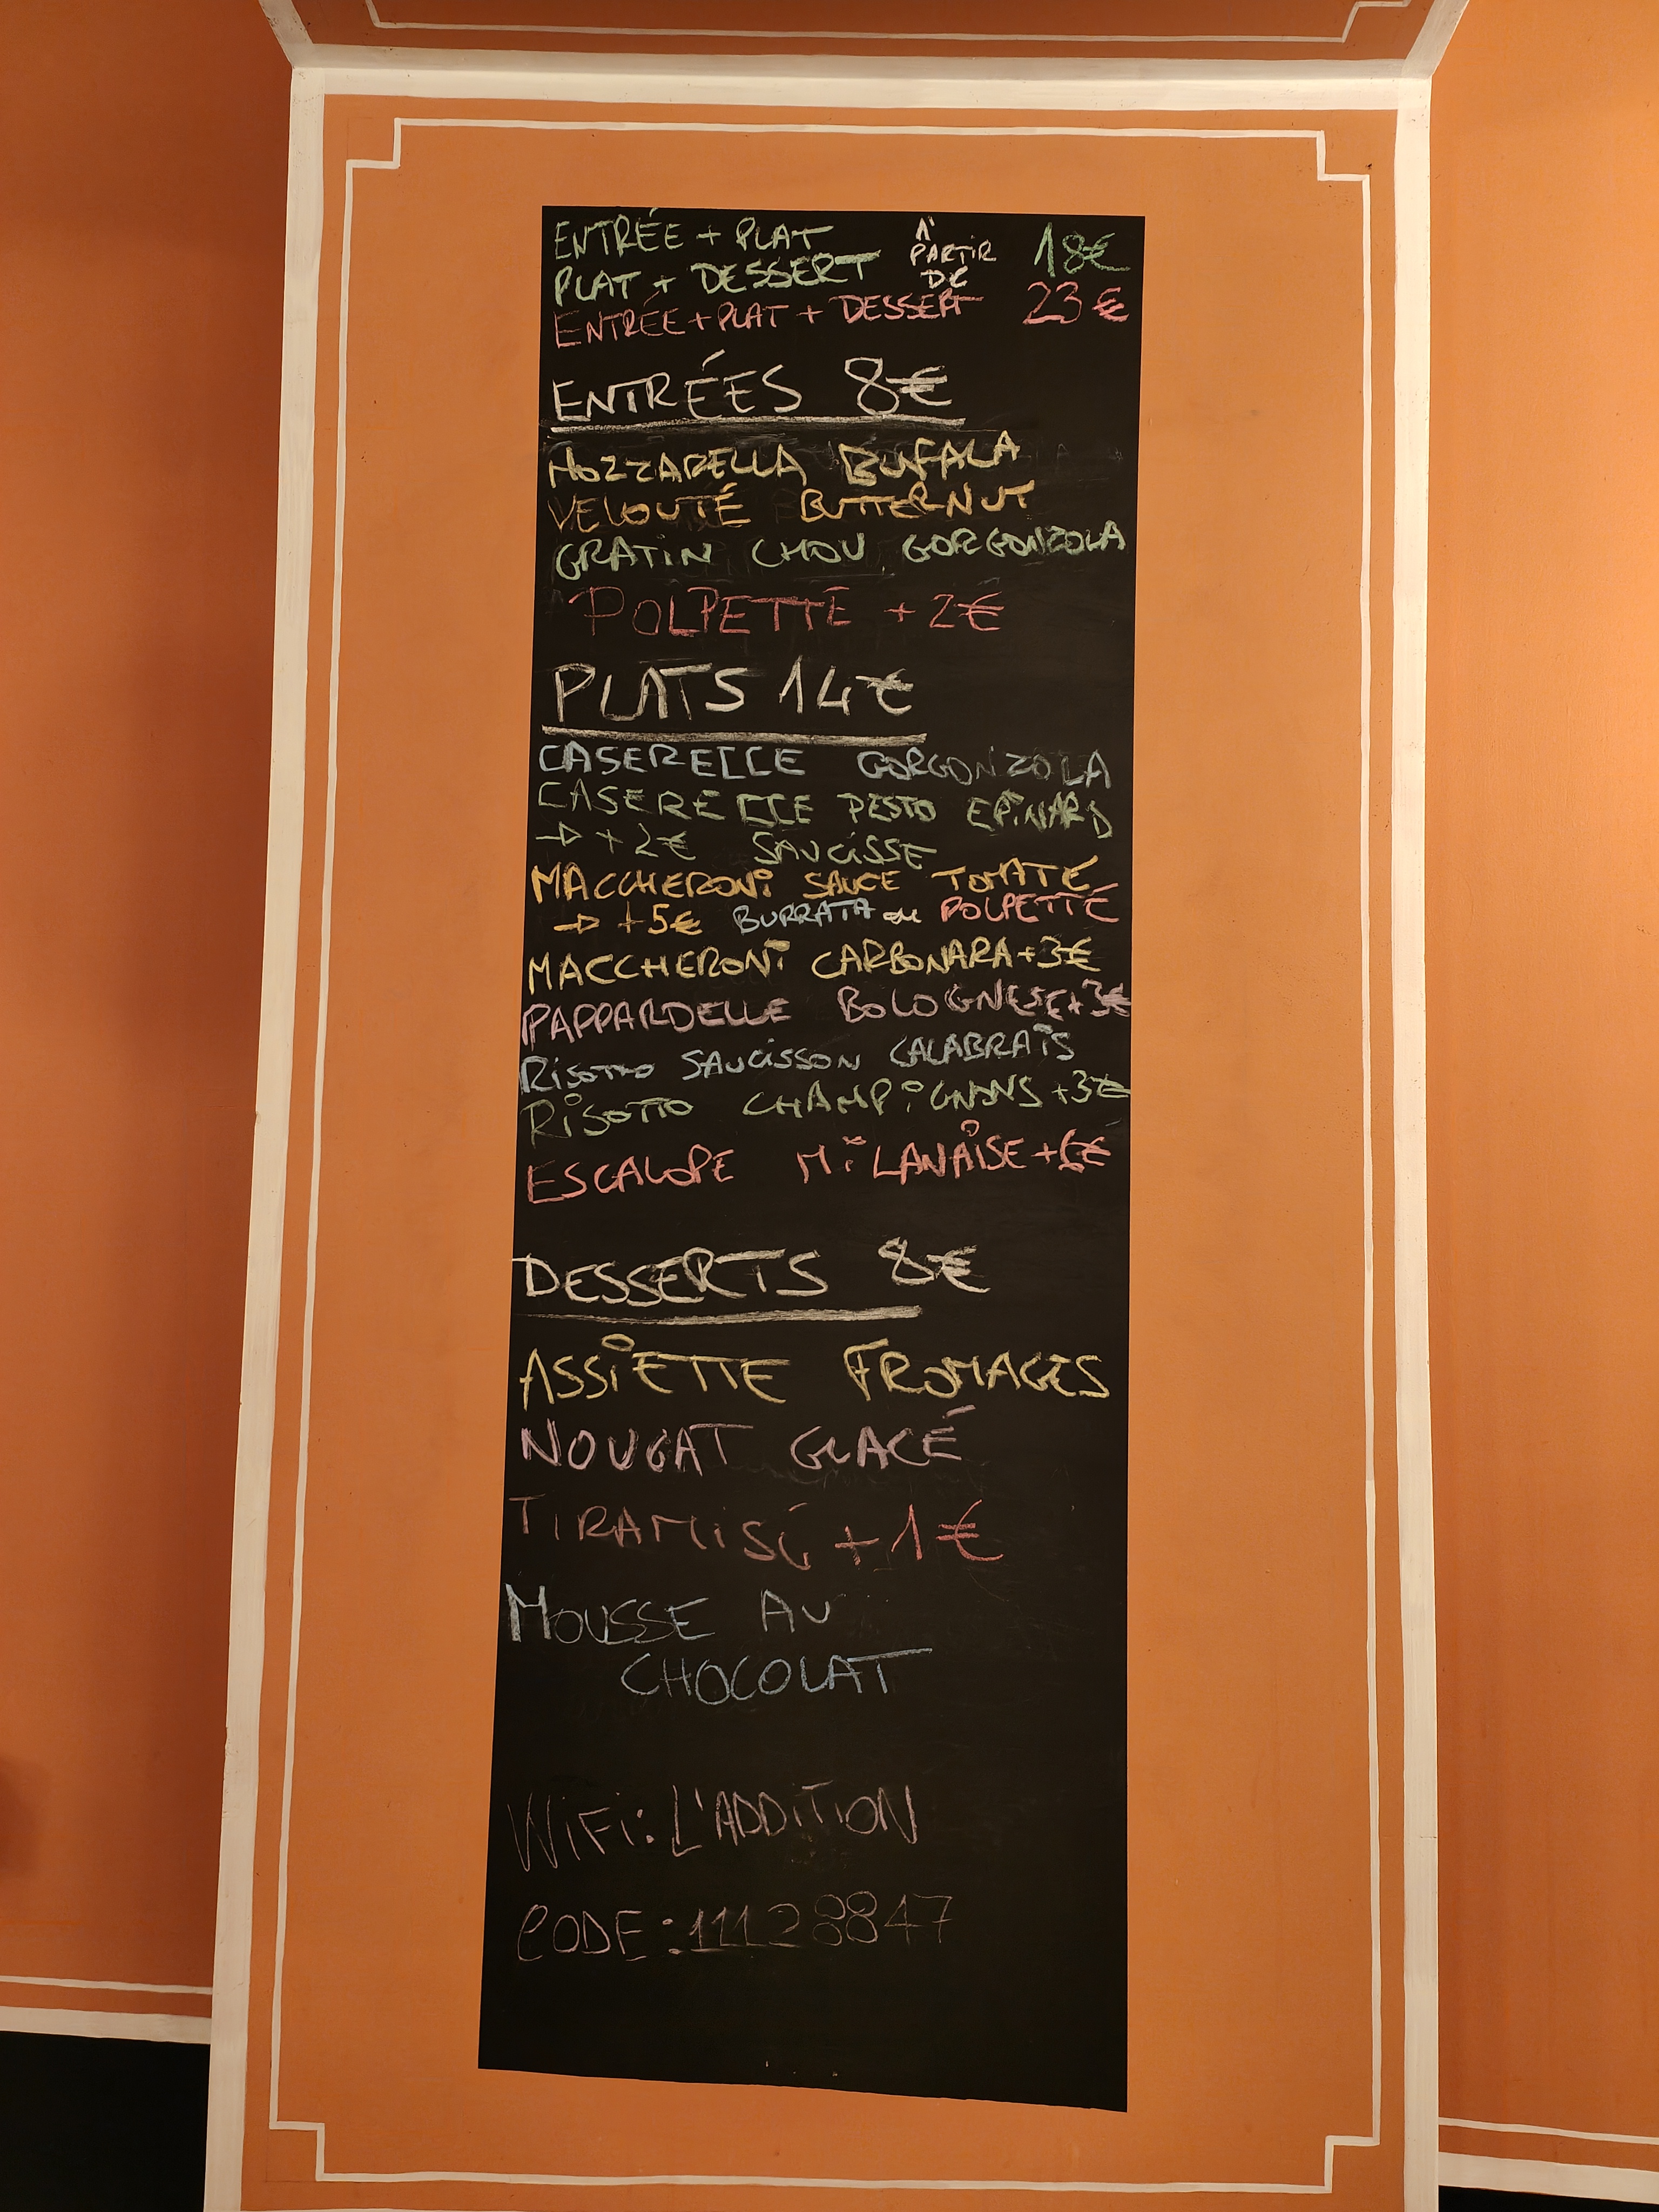 ENTRÉE + PLAT
PLAT + DESSERT
À PARTIR DE
18€
ENTRÉE + PLAT + DESSERT 23€
ENTRÉES 8€
MOZZARELLA BUFALA
VELOUTÉ BUTTERNUT
GRATIN CHOU GORGONZOLA
POLPETTE +2€
PLATS 14€
CASERECCE GORGONZOLA
CASERECCE PESTO EPINARD
→ +2€ SAUCISSE
MACCHERONI SAUCE TOMATE
→ +5€ BURRATA ou POLPETTE
MACCHERONI CARBONARA +3€
PAPPARDELLE BOLOGNESE +3€
RISOTTO SAUCISSON CALABRAIS
RISOTTO CHAMPIGNONS +3€
ESCALOPE MILANAISE +6€
DESSERTS 8€
ASSIETTE FROMAGES
NOUGAT GLACÉ
TIRAMISÚ +1€
MOUSSE AU
CHOCOLAT
WIFI: L'ADDITION
CODE: 11128847